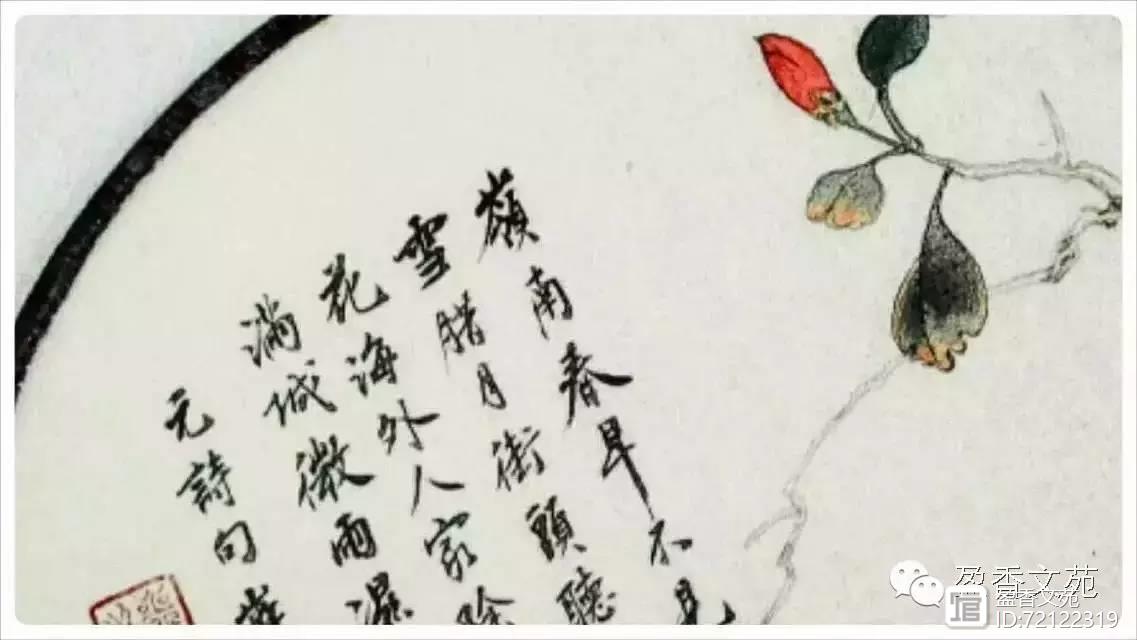 嶺南春早不見
雪腊月街頭聽
花海外人家除
滿城微雨濕
元詩句
盈香文苑
盈香文苑
ID:72122319